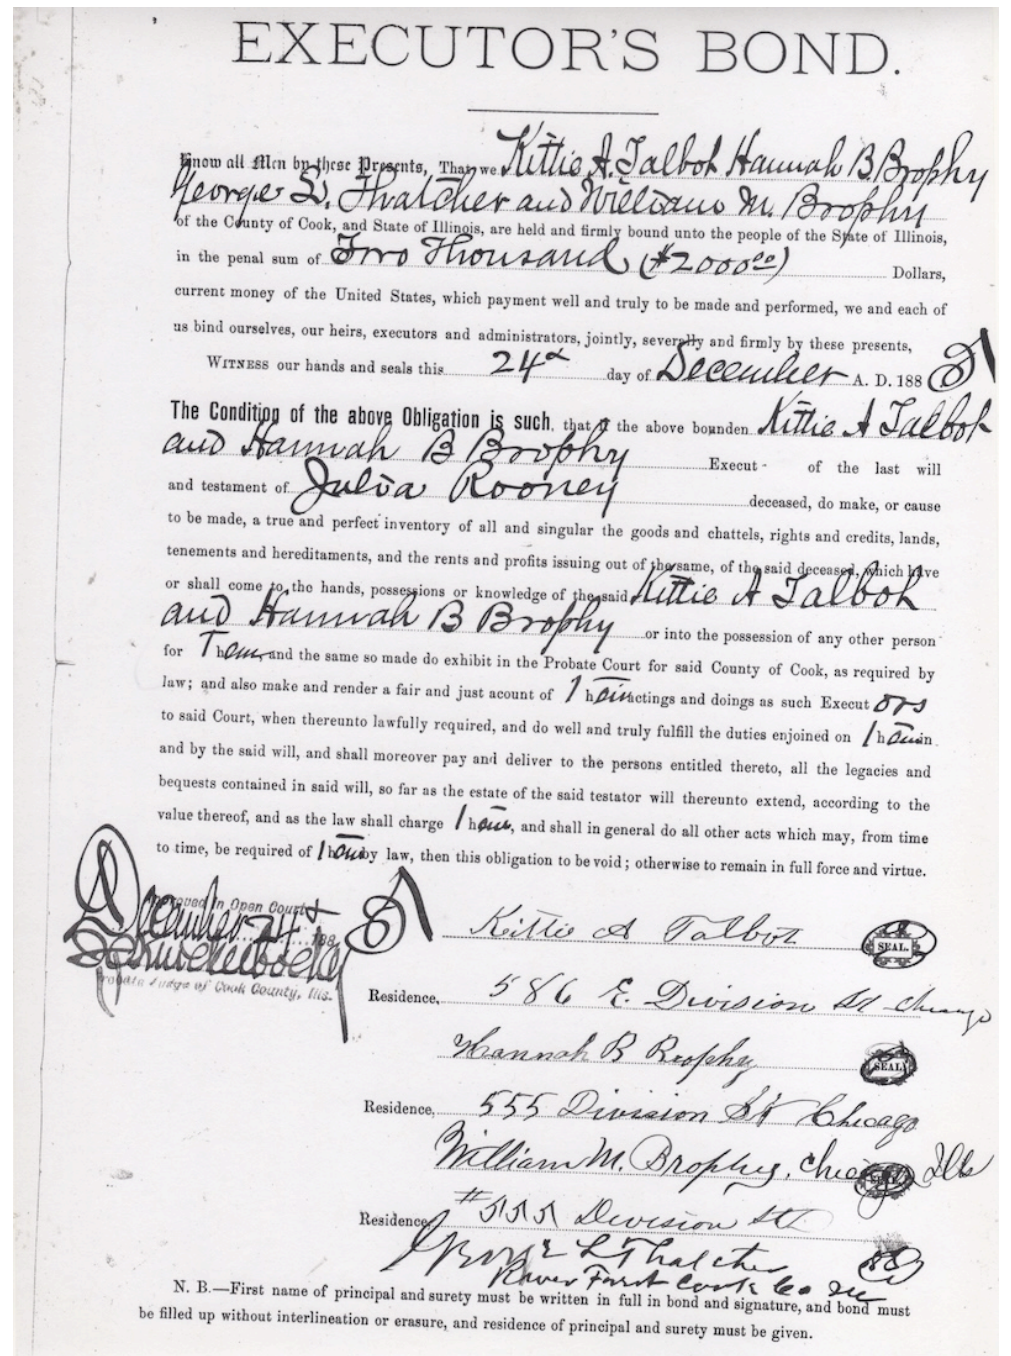 EXECUTOR'S BOND.
Know all Men by these Presents, That we Kittie A. Talbot Hannah B. Brophy
George L. Thatcher and William M. Brophy
of the County of Cook, and State of Illinois, are held and firmly bound unto the people of the State of Illinois,
in the penal sum of Two Thousand ($2000.00) Dollars,
current money of the United States, which payment well and truly to be made and performed, we and each of
us bind ourselves, our heirs, executors and administrators, jointly, severally and firmly by these presents,
WITNESS our hands and seals this 24th day of December A. D. 188
The Condition of the above Obligation is such, that if the above bounden Kittie A Talbot
and Hannah B Brophy Execut- of the last will
and testament of Julia Rooney deceased, do make, or cause
to be made, a true and perfect inventory of all and singular the goods and chattels, rights and credits, lands,
tenements and hereditaments, and the rents and profits issuing out of the same, of the said deceased, which have
or shall come to the hands, possessions or knowledge of the said Kittie A Talbot
and Hannah B Brophy or into the possession of any other person
for Them, and the same so made do exhibit in the Probate Court for said County of Cook, as required by
law; and also make and render a fair and just acount of Their actings and doings as such Executors
to said Court, when thereunto lawfully required, and do well and truly fulfill the duties enjoined on Them in
and by the said will, and shall moreover pay and deliver to the persons entitled thereto, all the legacies and
bequests contained in said will, so far as the estate of the said testator will thereunto extend, according to the
value thereof, and as the law shall charge Them, and shall in general do all other acts which may, from time
to time, be required of Them by law, then this obligation to be void; otherwise to remain in full force and virtue.
Approved in Open Court
December 24 188
Knickerbocker
Probate Judge of Cook County, Ills.
Kittie A Talbot SEAL.
Residence, 586 E. Division St Chicago
Hannah B Brophy SEAL
Residence, 555 Division St Chicago
William M. Brophy, Chicago Ills
Residence, #555 Division St.
George L Thatcher
River Forest Cook Co Ill
N. B.—First name of principal and surety must be written in full in bond and signature, and bond must
be filled up without interlineation or erasure, and residence of principal and surety must be given.